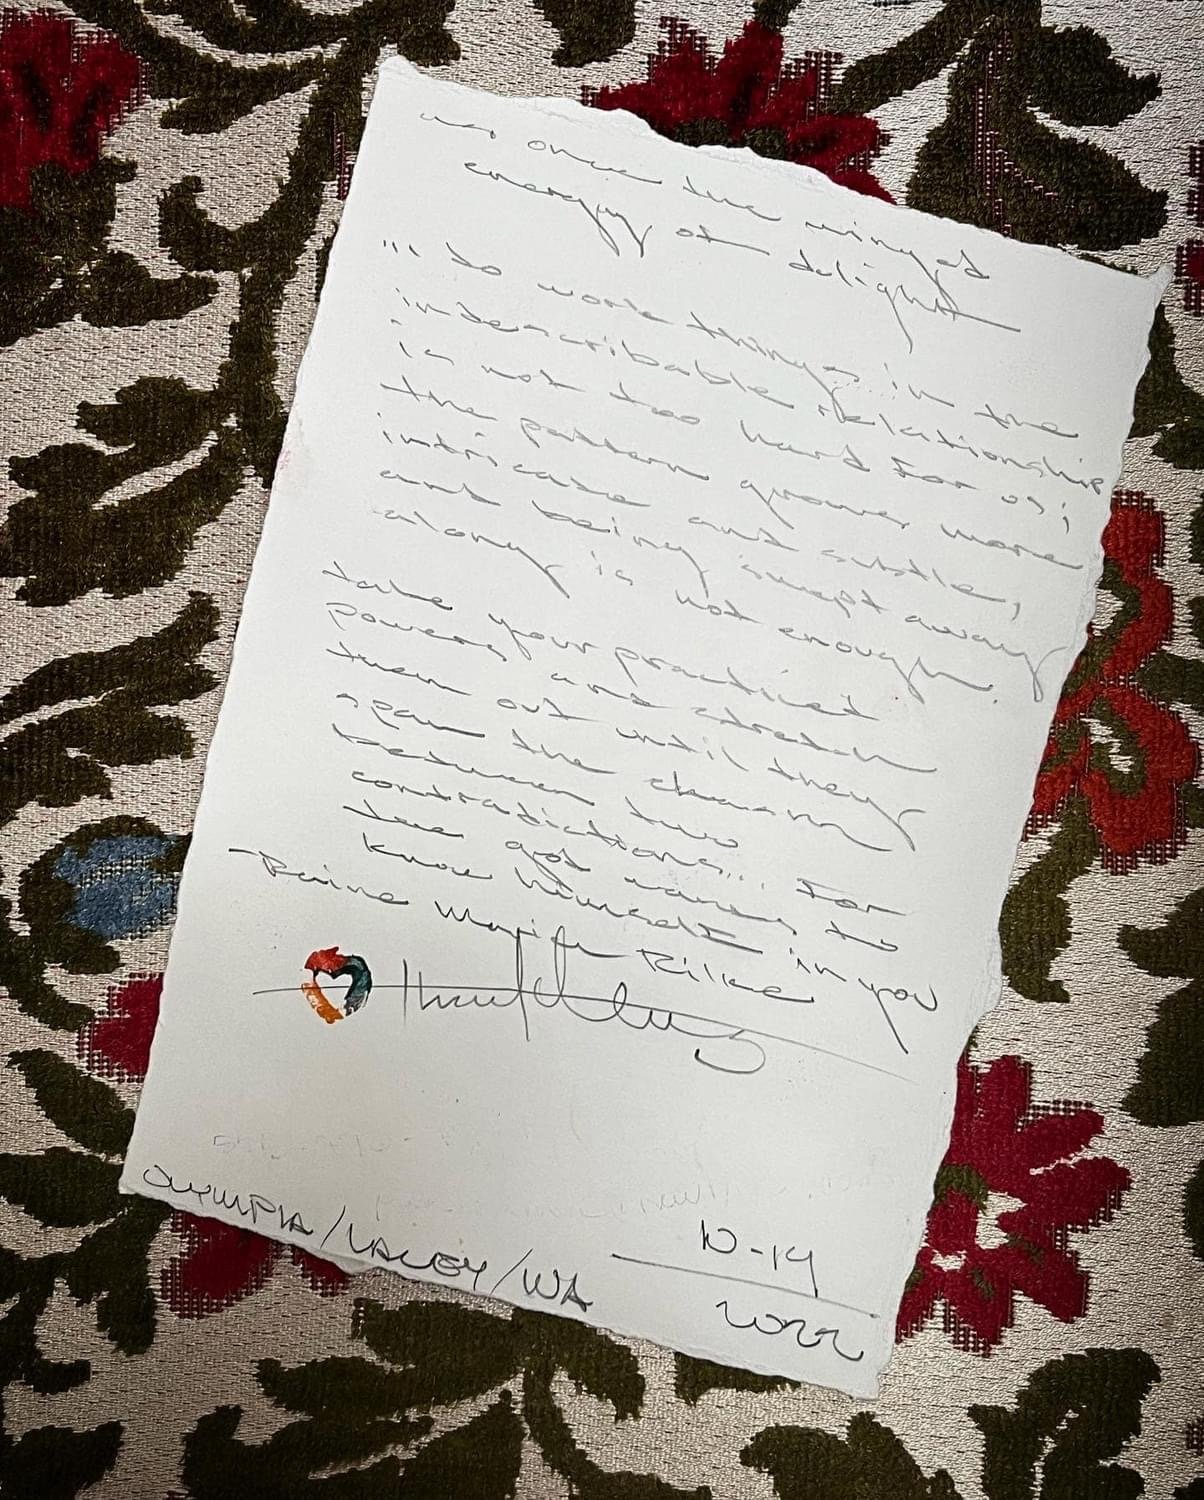 as, once the winged
energy of delight
... to work things in the
indescribable relationship
is not too hard for us;
the pattern grows more
intricate and subtle,
and being swept away
along is not enough.
take your practiced
powers and stretch
them out until they
span the chasm
between two
contradictions... For
the god wants to
know himself in you
-Raine Maria Rilke
OLYMPIA/LACEY/WA
10-14
2022